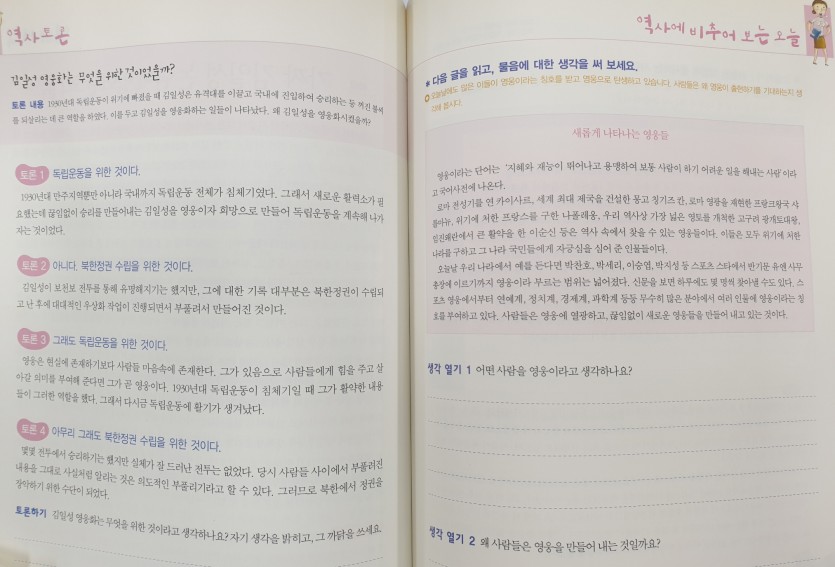 역사토론
김일성 영웅화는 무엇을 위한 것이었을까?
토론 내용 1930년대 독립운동이 위기에 빠졌을 때 김일성은 유격대를 이끌고 국내에 진입하여 승리하는 등 꺼진 불씨
를 되살리는 데 큰 역할을 하였다. 이를 두고 김일성을 영웅화하는 일들이 나타났다. 왜 김일성을 영웅화시켰을까?
토론 1 독립운동을 위한 것이다.
1930년대 만주지역뿐만 아니라 국내까지 독립운동 전체가 침체기였다. 그래서 새로운 활력소가 필
요했는데 끊임없이 승리를 만들어내는 김일성을 영웅이자 희망으로 만들어 독립운동을 계속해 나가
자는 것이었다.
토론 2 아니다. 북한정권 수립을 위한 것이다.
김일성이 보천보 전투를 통해 유명해지기는 했지만, 그에 대한 기록 대부분은 북한정권이 수립되
고 난 후에 대대적인 우상화 작업이 진행되면서 부풀려서 만들어진 것이다.
토론 3 그래도 독립운동을 위한 것이다.
영웅은 현실에 존재하기보다 사람들 마음속에 존재한다. 그가 있음으로 사람들에게 힘을 주고 살
아갈 의미를 부여해 준다면 그가 곧 영웅이다. 1930년대 독립운동이 침체기일 때 그가 활약한 내용
들이 그러한 역할을 했다. 그래서 다시금 독립운동에 활기가 생겨났다.
토론 4 아무리 그래도 북한정권 수립을 위한 것이다.
몇몇 전투에서 승리하기는 했지만 실체가 잘 드러난 전투는 없었다. 당시 사람들 사이에서 부풀려진
내용을 그대로 사실처럼 알리는 것은 의도적인 부풀리기라고 할 수 있다. 그러므로 북한에서 정권을
장악하기 위한 수단이 되었다.
토론하기 김일성 영웅화는 무엇을 위한 것이라고 생각하나요? 자기 생각을 밝히고, 그 까닭을 쓰세요.
역사에 비추어 보는 오늘
* 다음 글을 읽고, 물음에 대한 생각을 써 보세요.
오늘날에도 많은 이들이 영웅이라는 칭호를 받고 영웅으로 탄생하고 있습니다. 사람들은 왜 영웅이 출현하기를 기대하는지 생
각해 봅시다.
새롭게 나타나는 영웅들
영웅이라는 단어는 '지혜와 재능이 뛰어나고 용맹하여 보통 사람이 하기 어려운 일을 해내는 사람'이라
고 국어사전에 나온다.
로마 전성기를 연 카이사르, 세계 최대 제국을 건설한 몽고 칭기즈 칸, 로마 영광을 재현한 프랑크왕국 샤
를마뉴, 위기에 처한 프랑스를 구한 나폴레옹, 우리 역사상 가장 넓은 영토를 개척한 고구려 광개토대왕,
임진왜란에서 큰 활약을 한 이순신 등은 역사 속에서 찾을 수 있는 영웅들이다. 이들은 모두 위기에 처한
나라를 구하고 그 나라 국민들에게 자긍심을 심어 준 인물들이다.
오늘날 우리 나라에서 예를 든다면 박찬호, 박세리, 이승엽, 박지성 등 스포츠 스타에서 반기문 유엔 사무
총장에 이르기까지 영웅이라 부르는 범위는 넓어졌다. 신문을 보면 하루에도 몇 명씩 찾아낼 수도 있다. 스
포츠 영웅에서부터 연예계, 정치계, 경제계, 과학계 등등 무수히 많은 분야에서 여러 인물에 영웅이라는 칭
호를 부여하고 있다. 사람들은 영웅에 열광하고, 끊임없이 새로운 영웅들을 만들어 내고 있는 것이다.
생각 열기 1 어떤 사람을 영웅이라고 생각하나요?
생각 열기 2 왜 사람들은 영웅을 만들어 내는 것일까요?